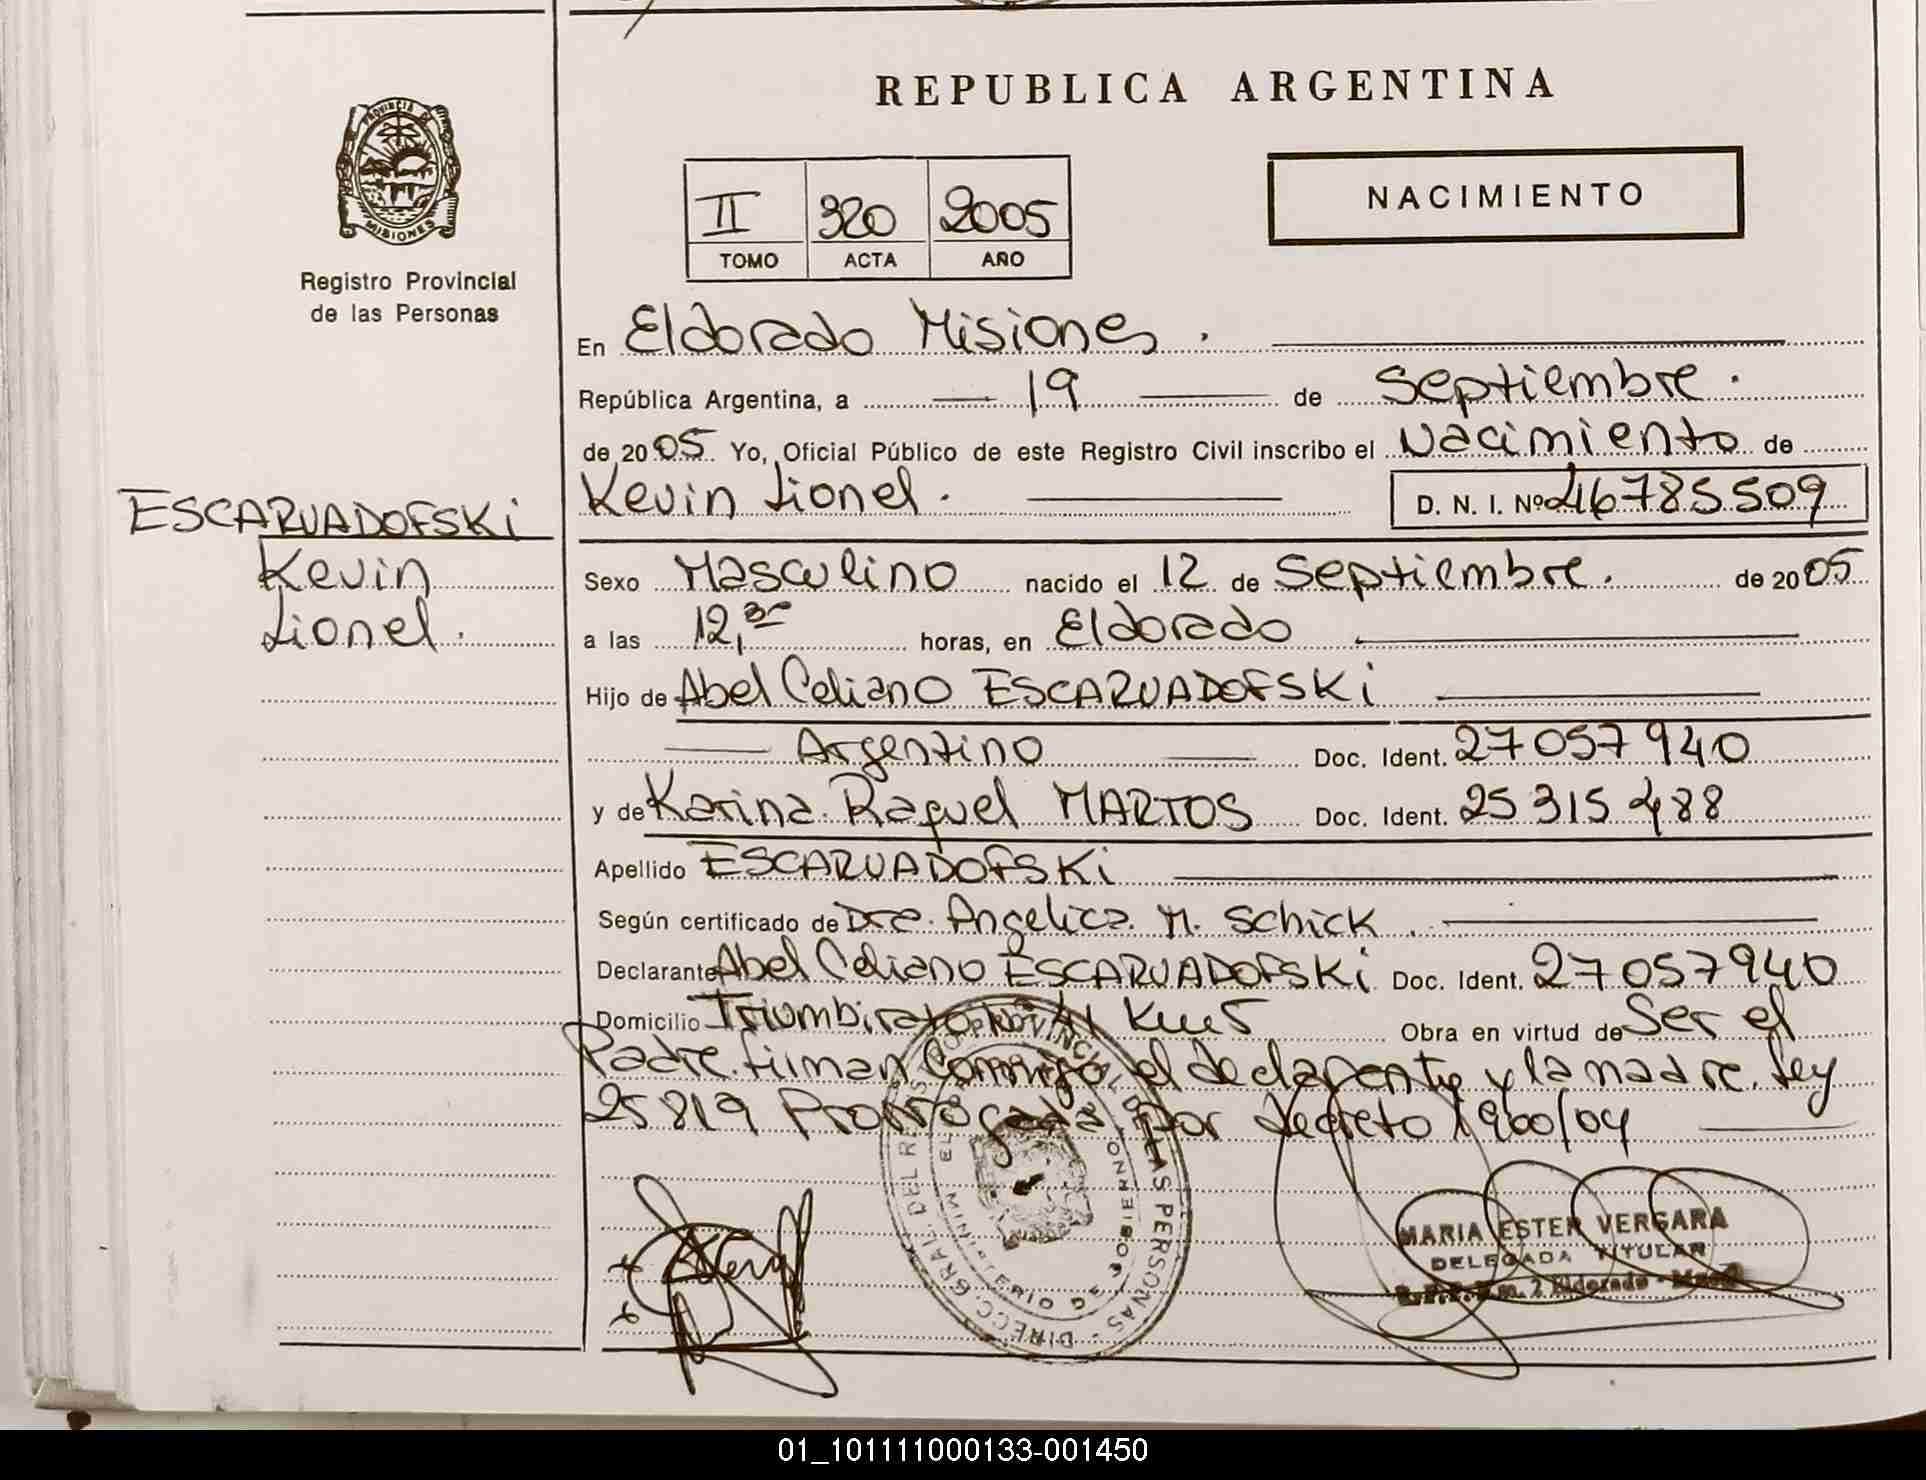 REPUBLICA ARGENTINA
PROVINCIA DE
MISIONES
Registro Provincial
de las Personas
II 320 2005
TOMO ACTA AÑO
NACIMIENTO
En Eldorado Misiones.
República Argentina, a 19 de Septiembre.
de 2005 Yo, Oficial Público de este Registro Civil inscribo el Nacimiento de
Kevin Lionel. D. N. I. Nº 46785509
ESCARVADOFSKi
Kevin
Lionel.
Sexo Masculino nacido el 12 de Septiembre. de 2005
a las 12,30 horas, en Eldorado
Hijo de Abel Celiano ESCARVADOFSKi
Argentino Doc. Ident. 27057940
y de Karina Raquel MARTOS Doc. Ident. 25315488
Apellido ESCARVADOFSKi
Según certificado de Dra. Angelica M. Schick.
Declarante Abel Celiano ESCARVADOFSKi Doc. Ident. 27057940
Domicilio Triumbirato Nº 41 Km 5 Obra en virtud de Ser el
Padre. firman Conmigo el declarente y la madre. Ley
25819 Prorrogada por decreto 1900/04
DIRECC. GRAL. DEL REGISTRO PROVINCIAL DE LAS PERSONAS
MINISTERIO DE GOBIERNO
MARIA ESTER VERGARA
DELEGADA TITULAR
Eldorado
01_101111000133-001450